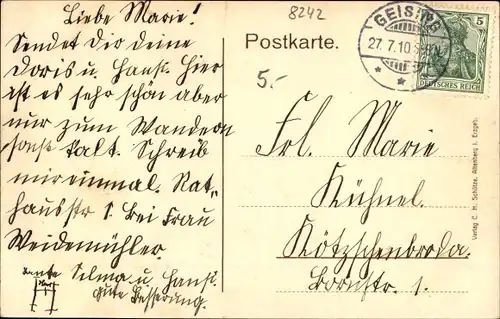 Liebe Marie!
Sendet Dir deine
Doris u. Hans. Hier
ist es sehr schön aber
nur zum Wandern
sonst kalt. Schreib
mir einmal. Rat-
hausstr 1. bei Frau
Weidemühler.
Tante Selma u. Hans.
gute Besserung.
8242
Postkarte.
5.-
GEISING
27. 7. 10
5
DEUTSCHES REICH
Frl. Marie
Kühnel.
Kötzschenbroda.
Bornstr. 1.
Verlag C. H. Schütze, Altenberg i. Erzgeb.